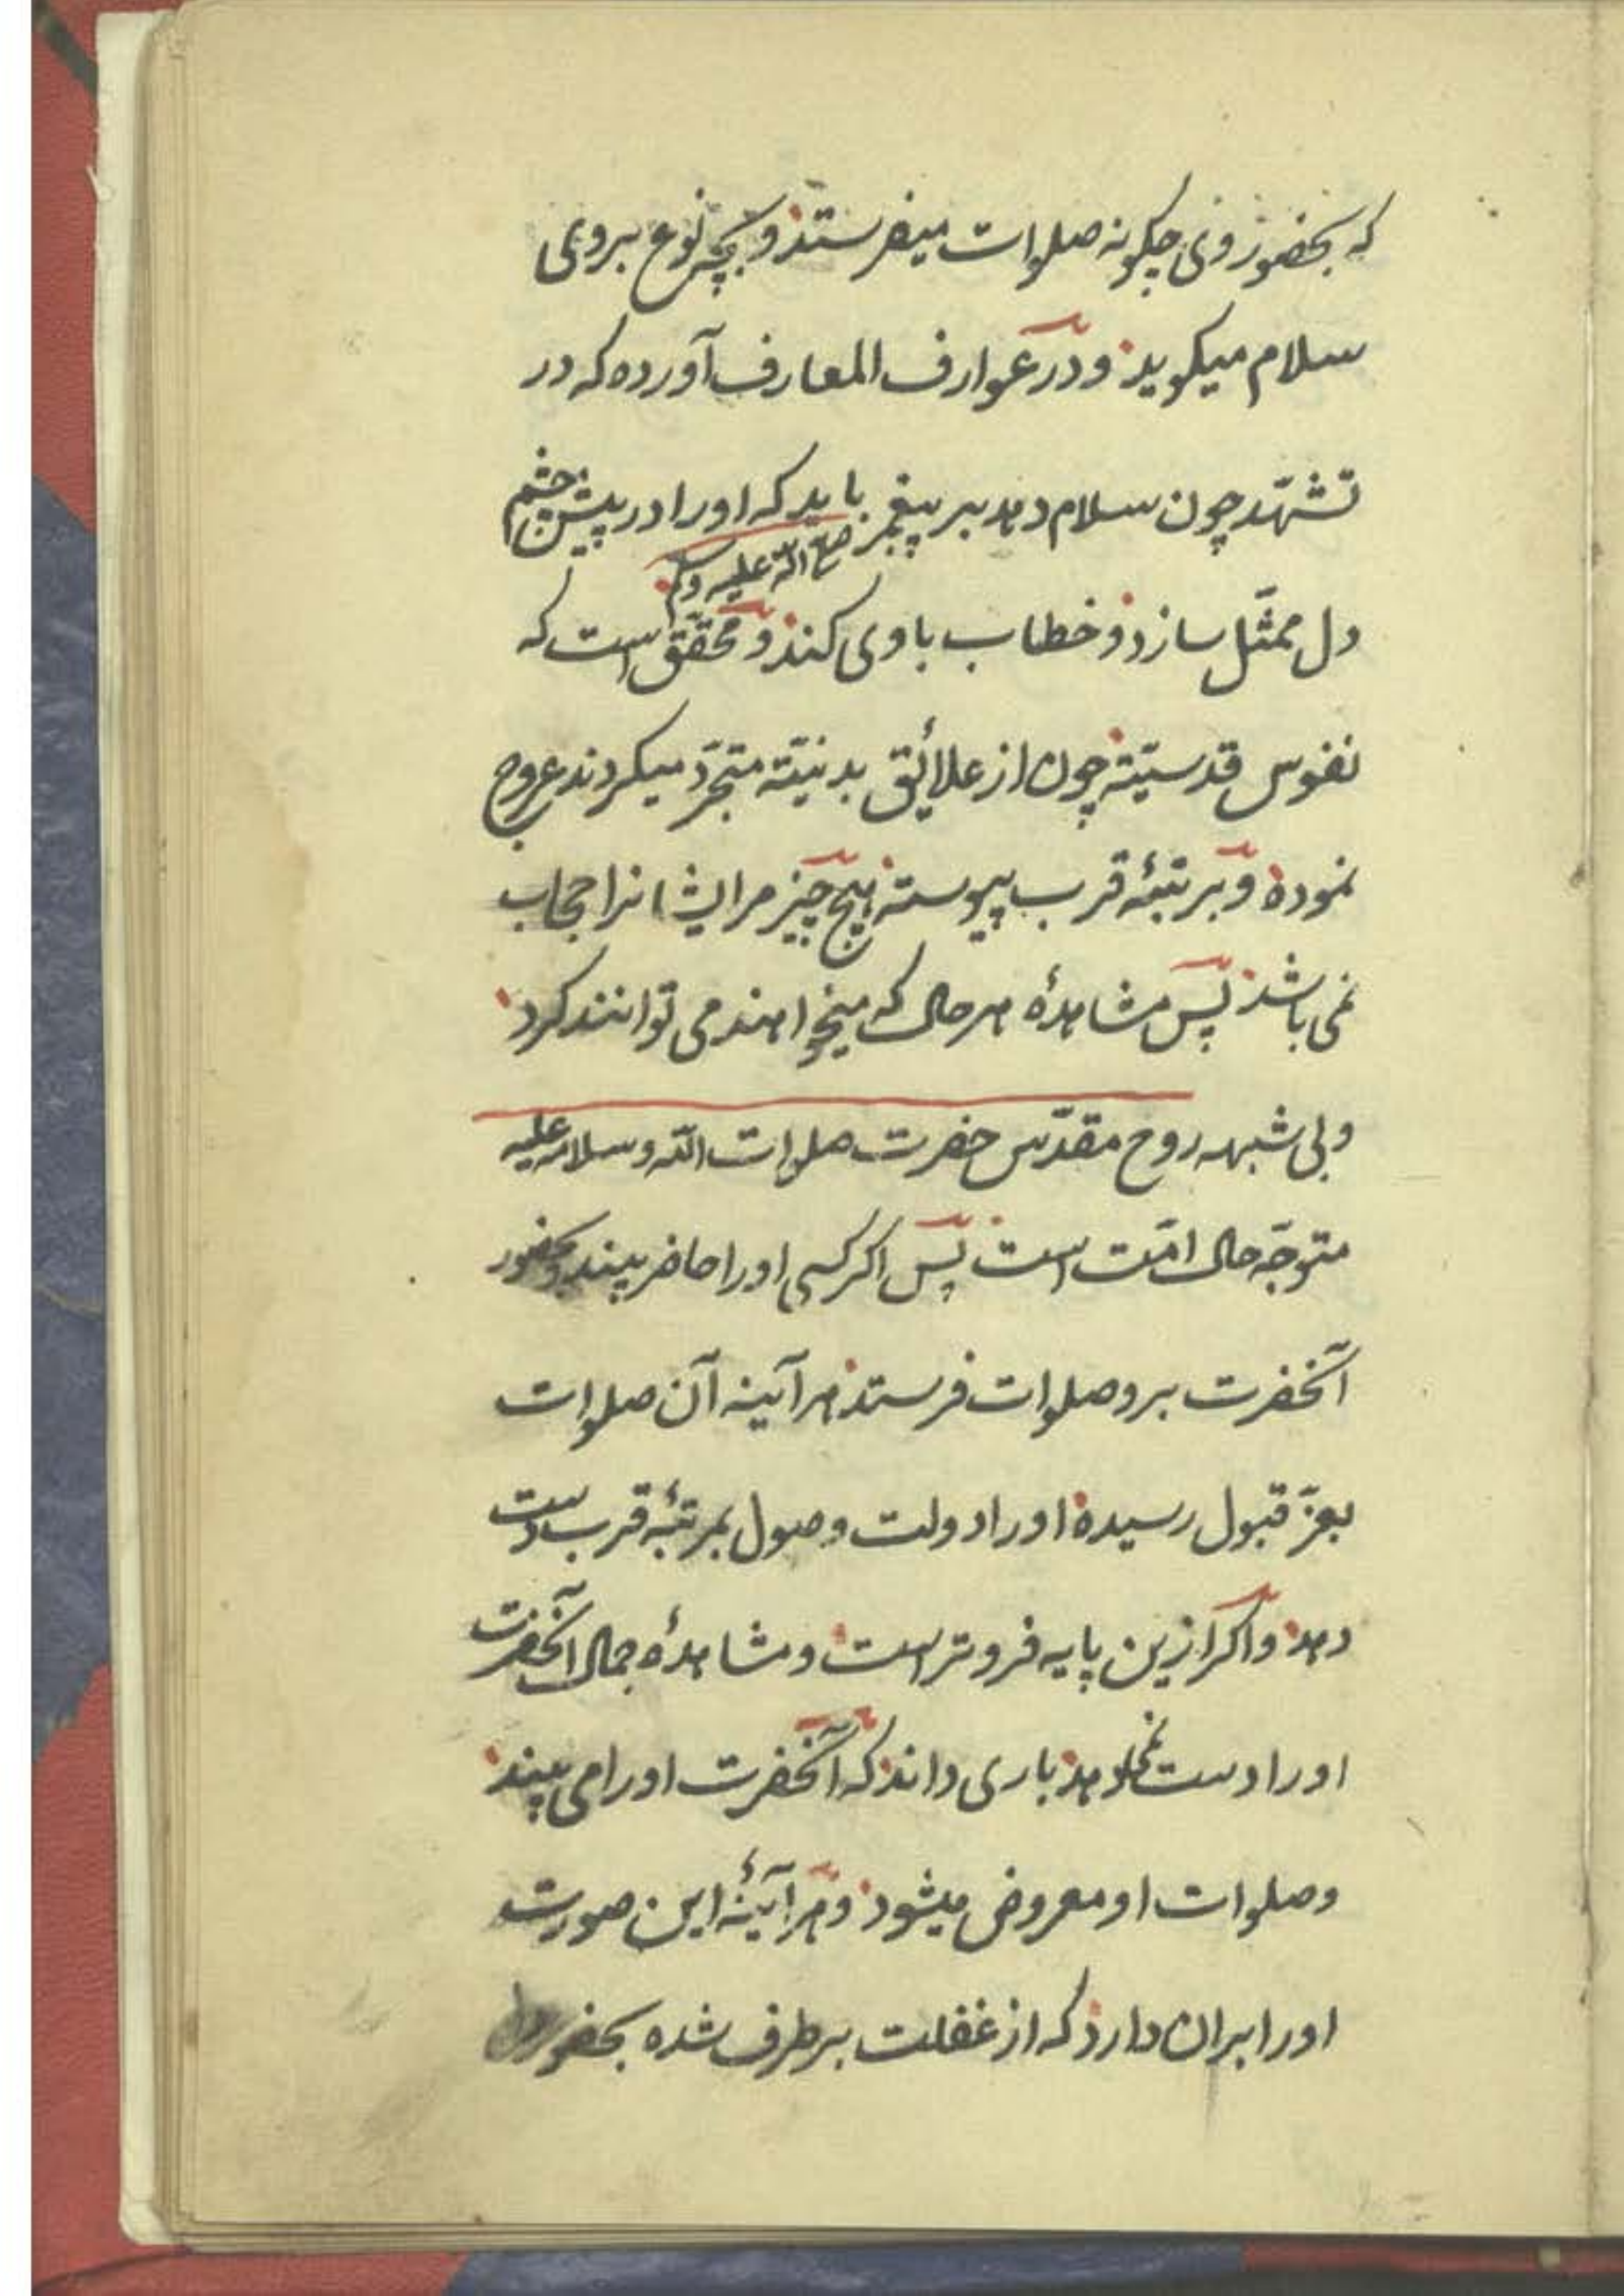 که بحضور وی چکونه صلوات میفرستد و بچه نوع بروی
سلام میکوید و در عوارف المعارف آورده که در
تشهّد چون سلام دهد بر پیغمبر باید که او را در پیش چشم
صلی الله علیه وسلم
دل ممثّل سازد و خطاب با وی کند و محقّق است که
نفوس قدسیّه چون از علائق بدنیّه متجرّد میکردند عروج
نموده و بمرتبهٔ قرب پیوسته هیچ چیز مر ایشانرا حجاب
نمی باشد پس مشاهدهٔ هر حال که میخواهند می توانند کرد
و بی شبهه روح مقدّس حضرت صلوات الله و سلامه علیه
متوجّه حال امّت است پس اکر کسی او را حاضر بیند و بحضور
آنحضرت برو صلوات فرستد هر آینه آن صلوات
بعزّ قبول رسیده او را دولت وصول بمرتبهٔ قرب دست
دهد و اکر ازین پایه فروتر است و مشاهدهٔ جمال آنحضرت
او را دست نمیدهد باری داند که آنحضرت او را می بیند
و صلوات او معروض میشود و هر آینهٔ این صورت
او را بران دارد که از غفلت برطرف شده بحضور